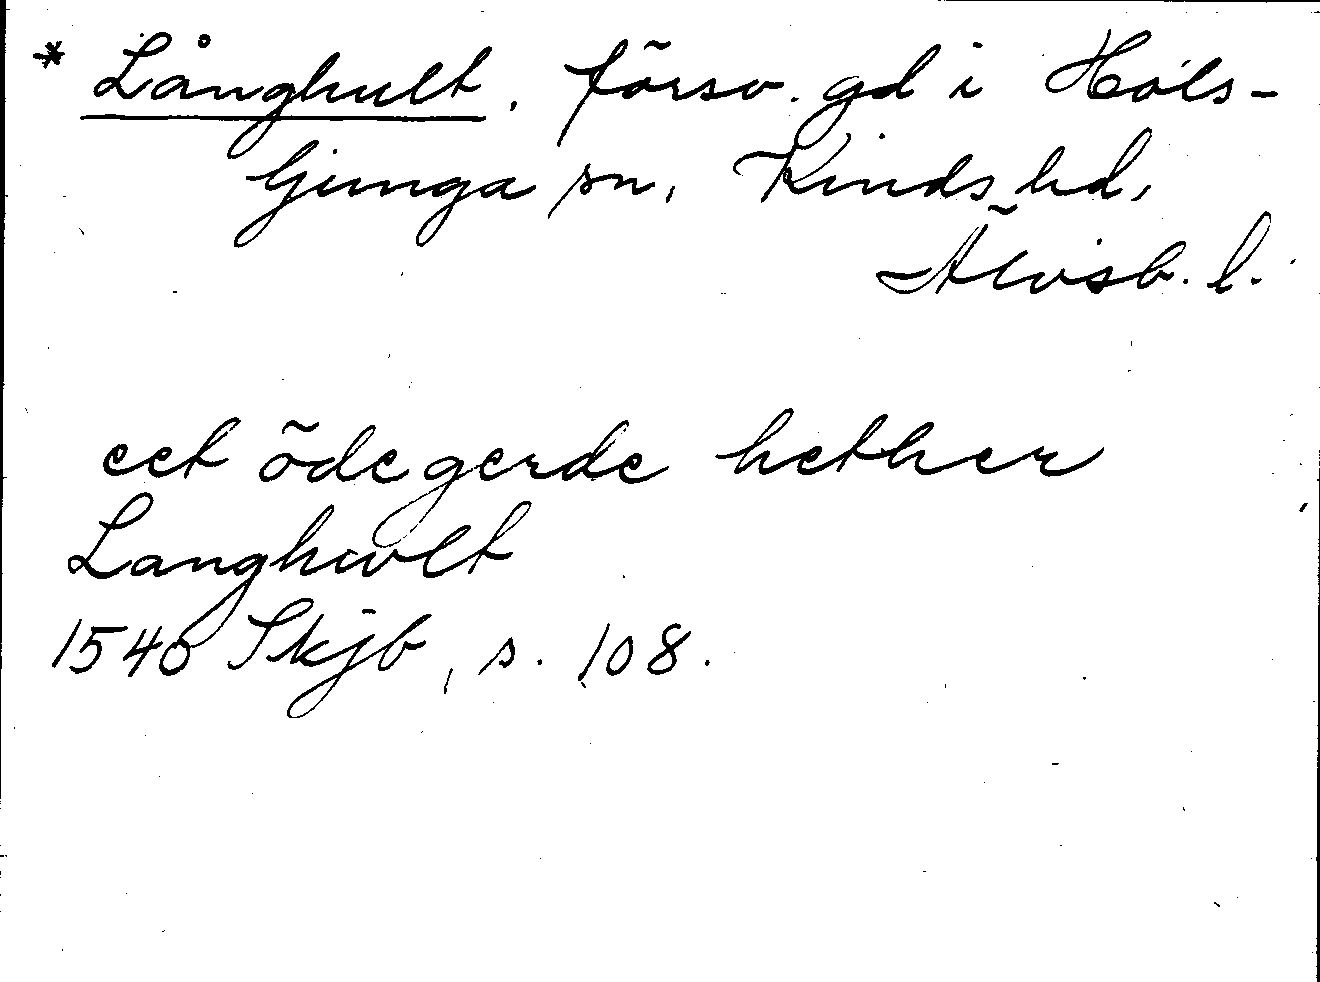 * Långhult, försv. gd i Hols-
ljunga sn, Kinds hd,
Älvsb. l.
eet ödegerde hether
Langhwlt
1540 Skjb, s. 108.